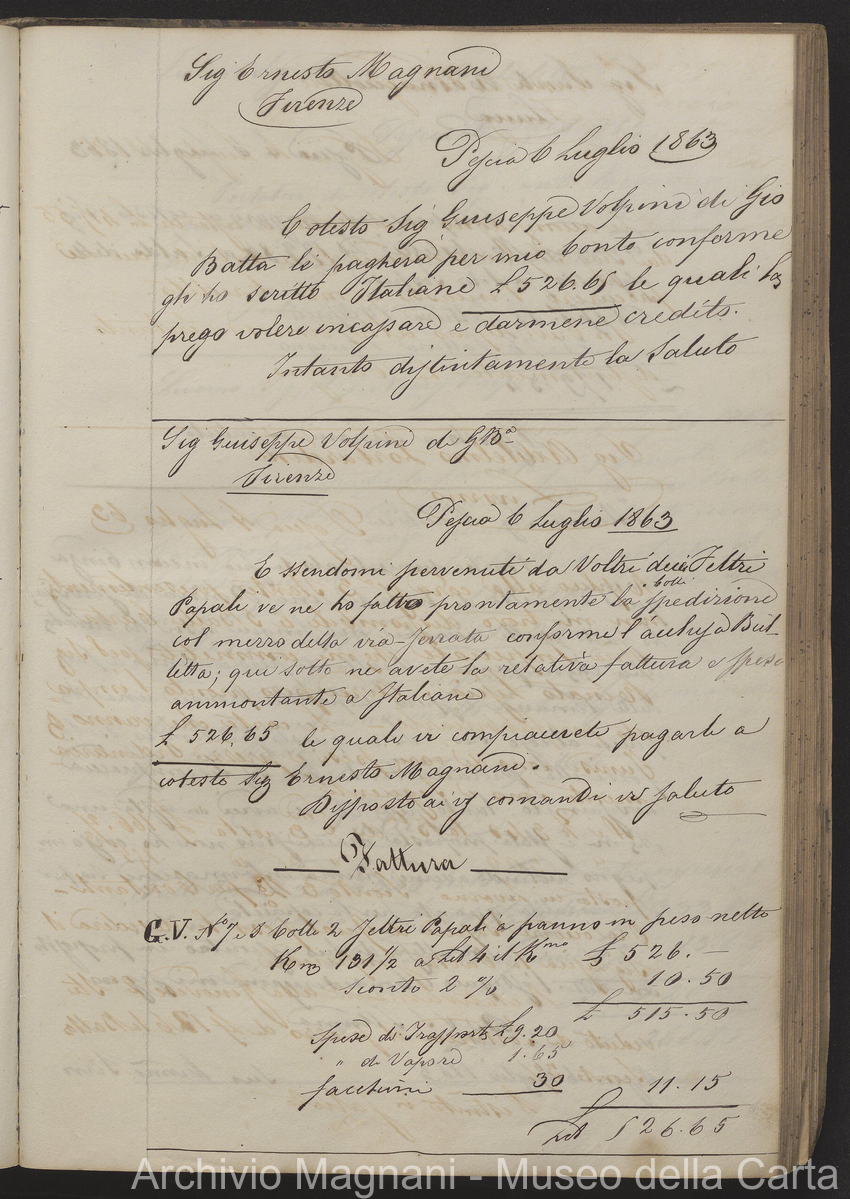 Sig Ernesto Magnani
Firenze
Pescia 6 Luglio 1863
Cotesto Sig Giuseppe Volpini di Gio
Batta li pagherà per mio Conto conforme
gli ho scritto Italiane £ 526.65 le quali La
prego volere incassare e darmene credito.
Intanto distintamente la Saluto
Sig Giuseppe Volpini di GBa
Firenze
Pescia 6 Luglio 1863
Essendomi pervenuti da Voltri due Colli Feltri
Papali ve ne ho fatto prontamente la spedizione
col mezzo della via-ferrata conforme l'acclusa Bul-
letta; qui sotto ne avete la relativa fattura e spese
ammontante a Italiane
£ 526.65 le quali vi compiacerete pagarle a
cotesto Sig Ernesto Magnani.
Disposto ai vj comandi vi saluto
Fattura
G.V. No 7 e 8 Colli 2 Feltri Papali a panno in peso netto
Kmi 131 1/2 a Lit 4 il Kmo £ 526.-
Sconto 2 % 10.50
£ 515.50
Spese di Trasporto £ 9.20
" di Vapore 1.65
facchini 30 11.15
Lit £ 526.65
Archivio Magnani - Museo della Carta